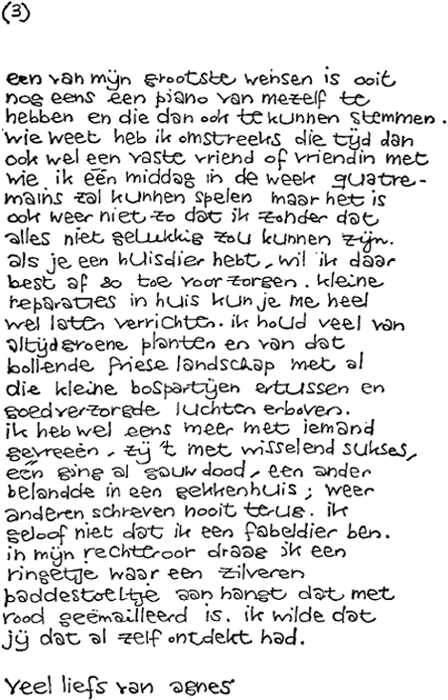 (3)
een van mijn grootste wensen is ooit
nog eens een piano van mezelf te
hebben en die dan ook te kunnen stemmen.
wie weet heb ik omstreeks die tijd dan
ook wel een vaste vriend of vriendin met
wie ik één middag in de week quatre-
mains zal kunnen spelen maar het is
ook weer niet zo dat ik zonder dat
alles niet gelukkig zou kunnen zijn.
als je een huisdier hebt, wil ik daar
best af so toe voor zorgen. kleine
reparaties in huis kun je me heel
wel laten verrichten. ik houd veel van
altijdgroene planten en van dat
bollende friese landschap met al
die kleine bospartijen ertussen en
goedverzorgde luchten erboven.
ik heb wel eens meer met iemand
gevreeën, zij 't met wisselend sukses,
eén ging al gauw dood, een ander
belandde in een gekkenhuis; weer
anderen schreven nooit terug. ik
geloof niet dat ik een fabeldier ben.
in mijn rechteroor draag ik een
ringetje waar een zilveren
paddestoeltje aan hangt dat met
rood geëmailleerd is. ik wilde dat
jij dat al zelf ontdekt had.
veel liefs van agnes